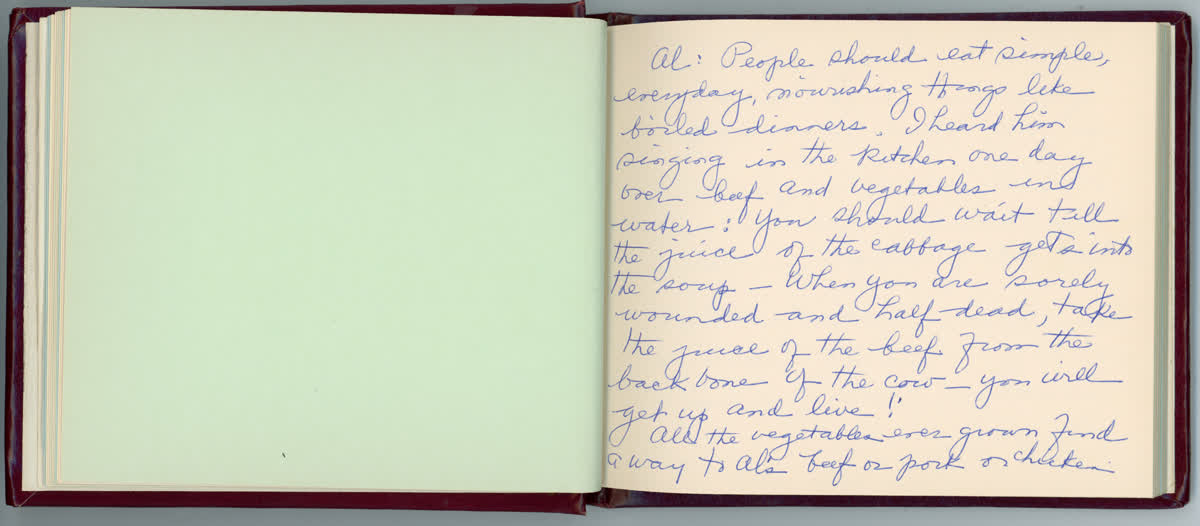 Al: People should eat simple,
everyday, nourishing things like
boiled dinners. I heard him
singing in the kitchen one day
over beef and vegetables in
water: You should wait till
the juice of the cabbage gets into
the soup – When you are sorely
wounded and half-dead, take
the juice of the beef from the
back bone of the cow – you will
get up and live!"
All the vegetables ever grown find
a way to Al's beef or pork or chicken